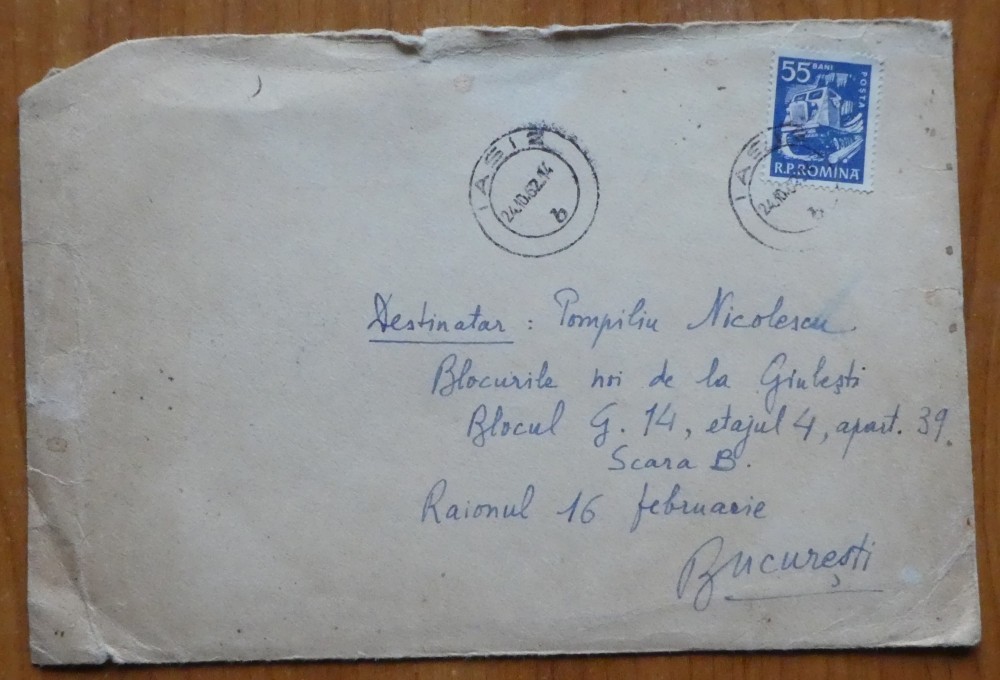 55 BANI
POSTA
R.P.ROMINA
IASI
24.10.62.14
IAS
24.10.62
Destinatar : Pompiliu Nicolescu
Blocurile noi de la Giulești
Blocul G. 14, etajul 4, apart. 39.
Scara B.
Raionul 16 februarie
București